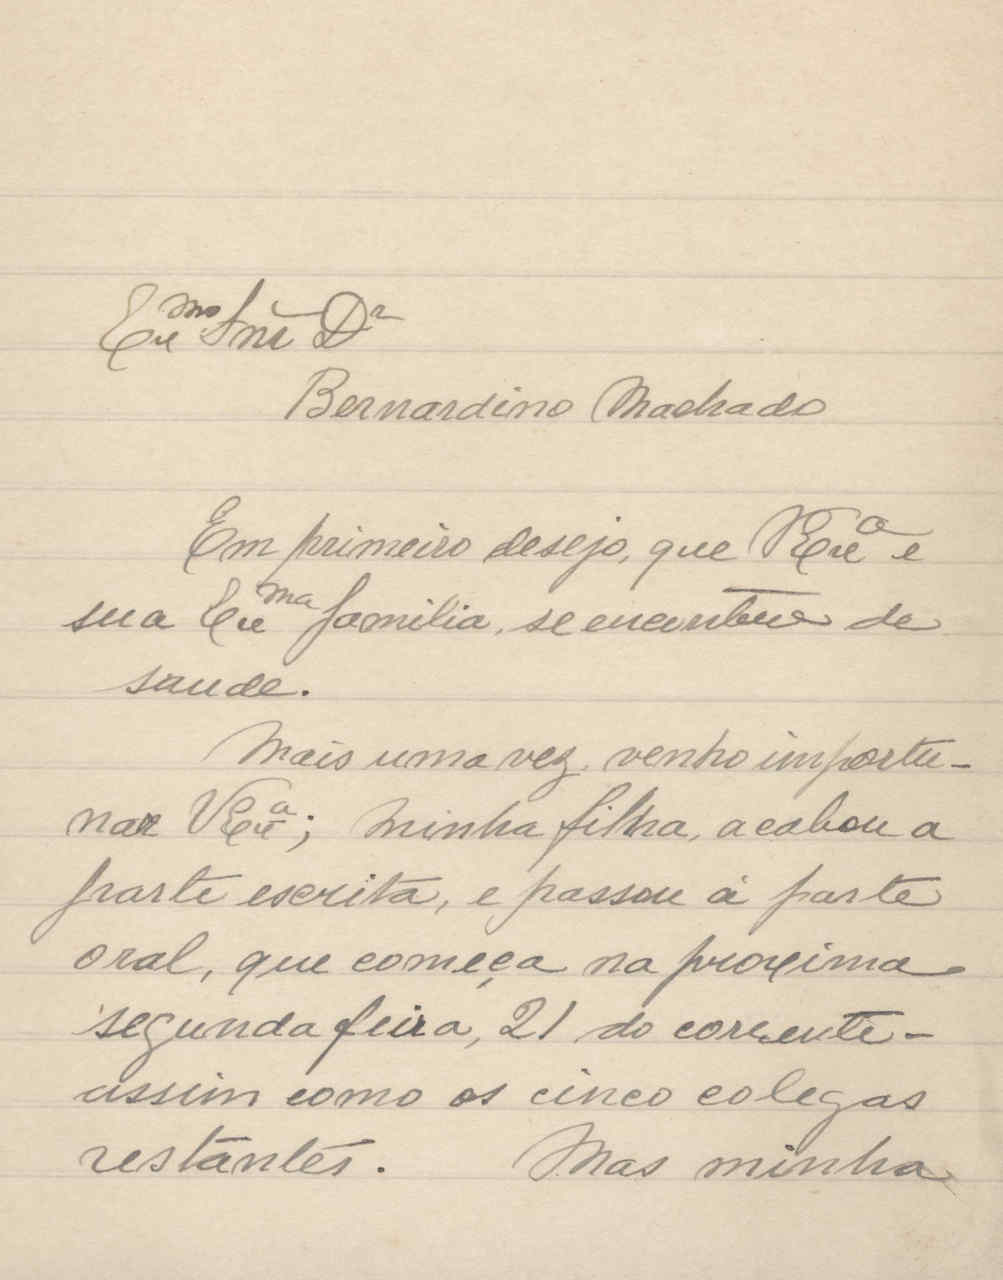 Exmo Snr Dr
Bernardino Machado
Em primeiro desejo, que V Exa e
sua Exma familia, se encontre de
saude.
Mais uma vez, venho importu-
nar V Exa; minha filha, acabou a
parte escrita, e passou á parte
oral, que começa na proxima
segunda feira, 21 do corrente-
assim como os cinco colegas
restantes. Mas minha